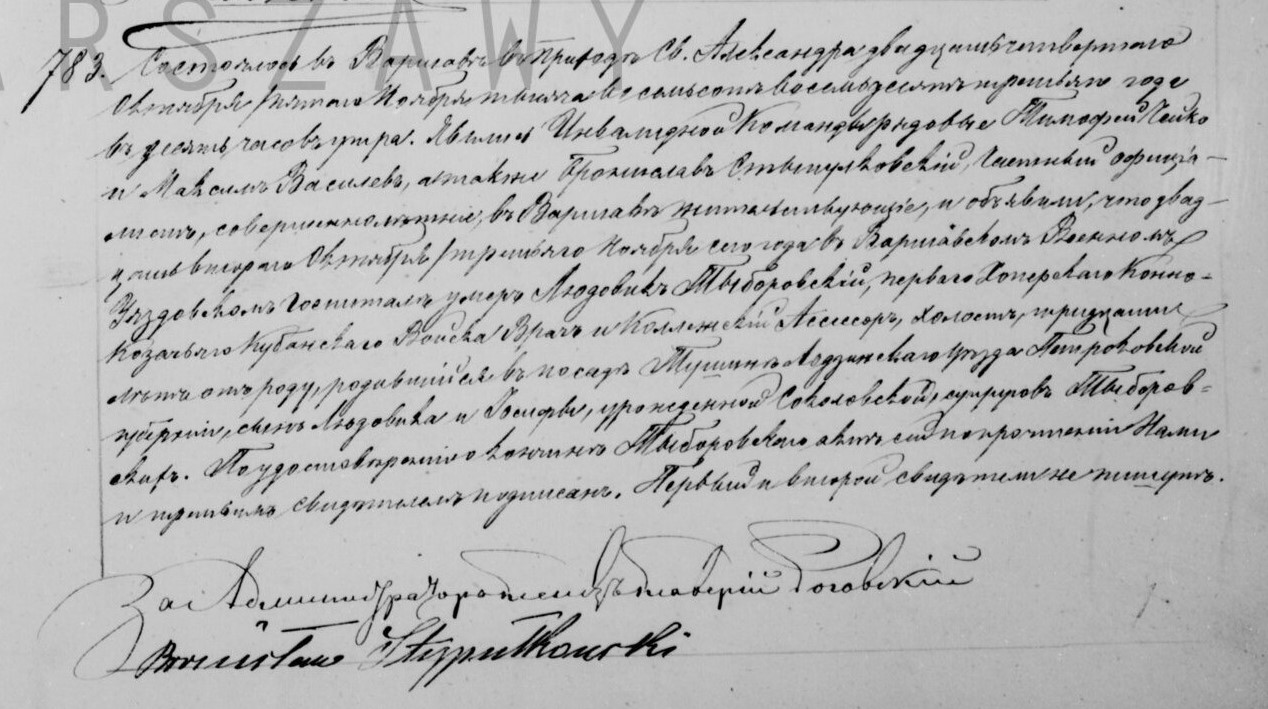 RSZAWY
783. Состоялось въ Варшавѣ въ приходѣ Св. Александра двадцать четвертаго
Октября /пятаго Ноября тысяча восемьсотъ восемьдесятъ третьяго года
въ десять часовъ утра. Явились Инвалидной Команды рядовые Тимофей
и Максимъ Василевъ, а также Брониславъ Стыпулковскій, Частный оффиціа-
листъ, совершеннолѣтніе, въ Варшавѣ жительствующіе, и объявили, что двад-
цать втораго Октября /третьяго Ноября сего года въ Варшавскомъ Военномъ
Уяздовскомъ Госпиталѣ умеръ Людовикъ Тыборовскій, перваго Хоперскаго Конно-
Козачьяго Кубанскаго Войска Врачъ и Коллежскій Асессоръ, холостъ, тридцати
лѣтъ отъ роду, родившійся въ посадѣ Тушинѣ Лодзинскаго уѣзда Петроковской
губерніи, сынъ Людовика и Іосифы, урожденной Соколовской, супруговъ Тыборов-
скихъ. По удостовѣреніи о кончинѣ Тыборовскаго актъ сей по прочтеніи Нами
и третьимъ свидѣтелемъ подписанъ. Первый и второй свидѣтели не пишутъ.
За Администратора Роговскій
Bronisław Stypułkowski